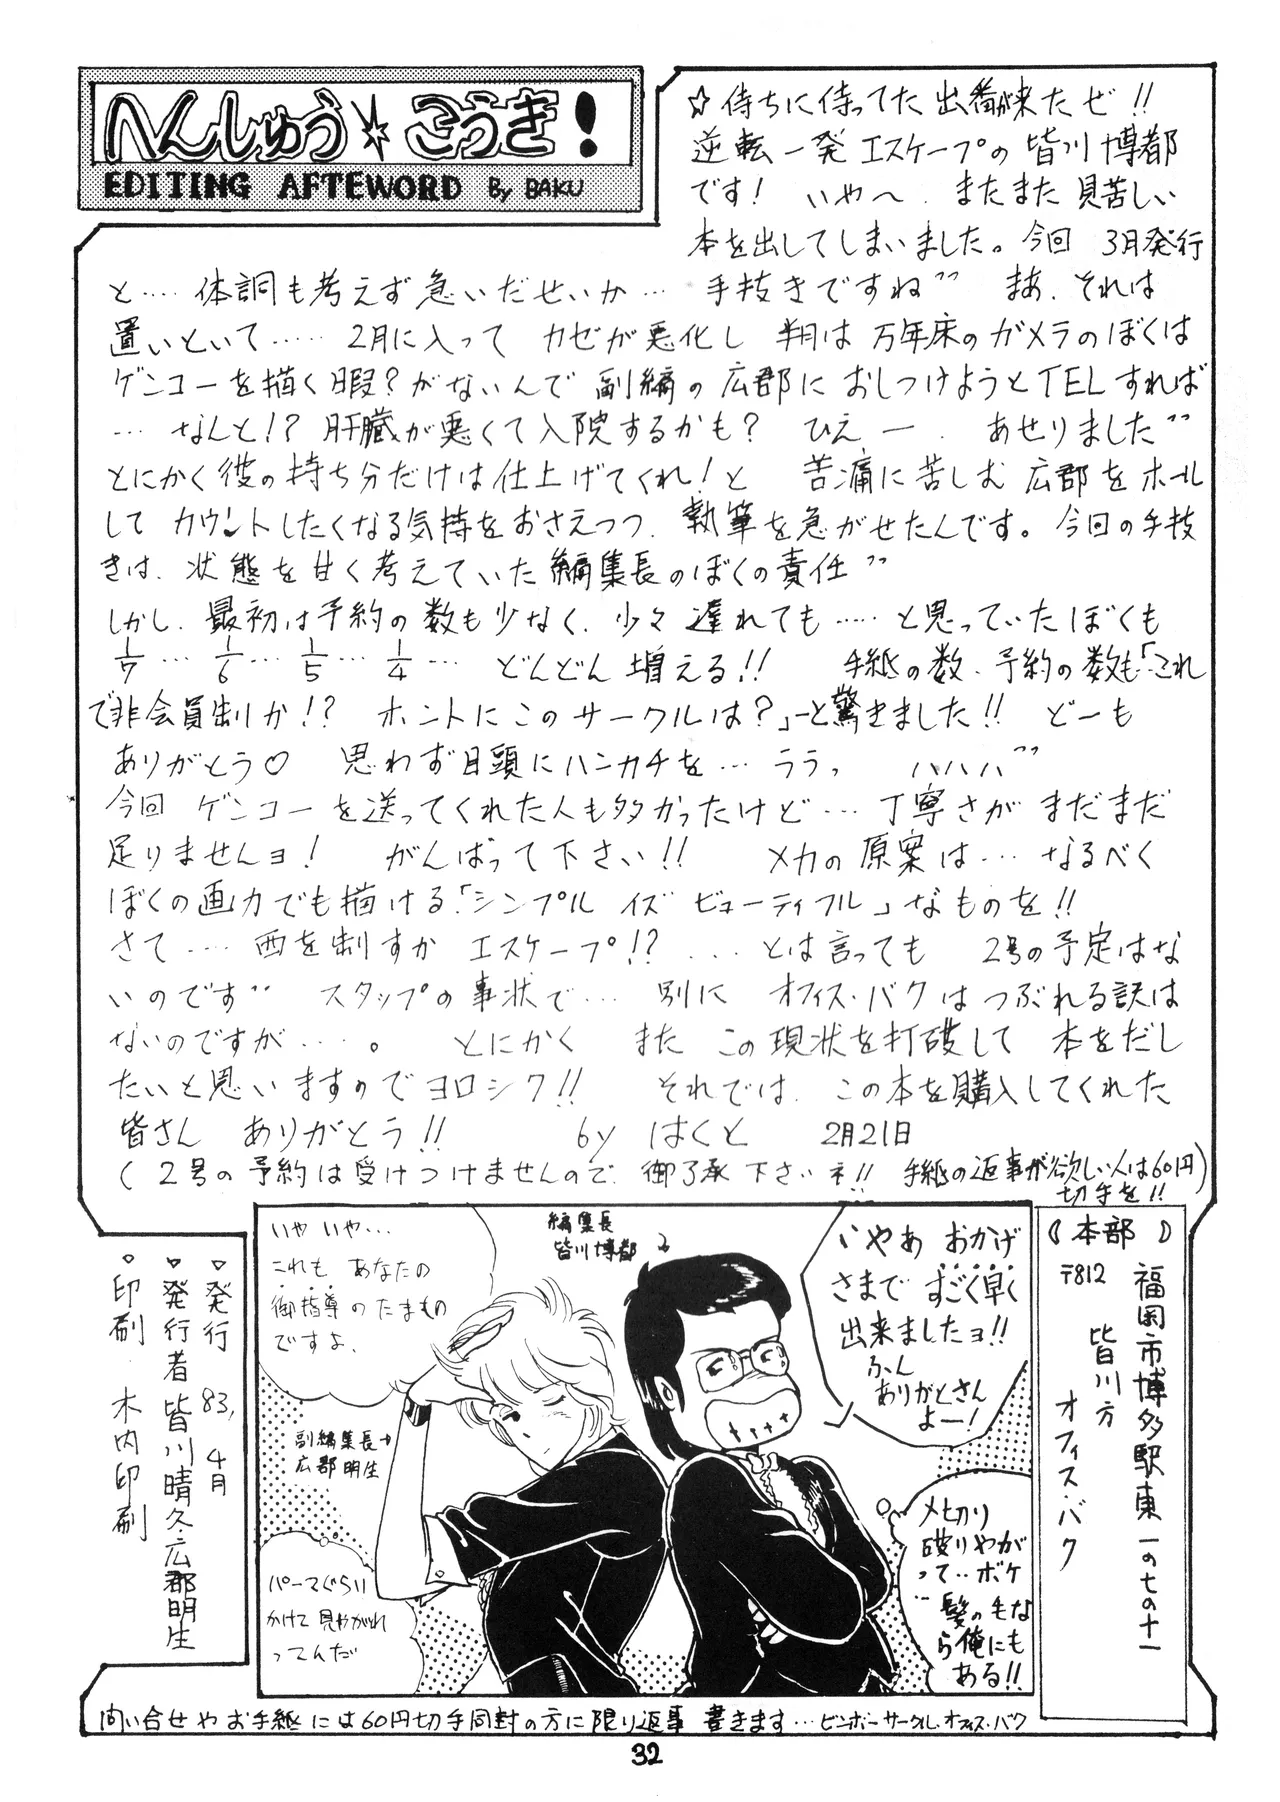 へんしゅう☆こうき!
EDITING AFTEWORD By BAKU
☆待ちに待ってた出番が来たぜ!!
逆転一発エスケープの皆川博都
です! いや〜、またまた見苦しい
本を出してしまいました。今回 3月発行
と‥‥体調も考えず急いだせいか‥‥手抜きですね〃 まあ、それは
置いといて‥‥‥2月に入って カゼが悪化し 翔は万年床のガメラのぼくは
ゲンコーを描く暇?がないんで 副編の広郡におしつけようとTELすれば
‥‥なんと!? 肝臓が悪くて入院するかも? ひえー、あせりました〃
とにかく彼の持ち分だけは仕上げてくれ!と 苦痛に苦しむ広郡をホール
して カウントしたくなる気持をおさえつつ、執筆を急がせたんです。今回の手抜
きは、状態を甘く考えていた編集長のぼくの責任〃
しかし、最初は予約の数も少なく、少々遅れても‥‥‥と思っていたぼくも
1/7‥‥1/6‥‥1/5‥‥1/4‥‥どんどん増える!! 手紙の数、予約の数も「これ
で非会員制か!? ホントにこのサークルは?」と驚きました!! どーも
ありがとう♡ 思わず目頭にハンカチを‥‥ううっ ハハハ〃
今回 ゲンコーを送ってくれた人も多かったけど‥‥丁寧さが まだまだ
足りませんヨ! がんばって下さい!! メカの原案は‥‥なるべく
ぼくの画力でも描ける「シンプル イズ ビューティフル」なものを!!
さて‥‥‥西を制すか エスケープ!? ‥‥とは言っても 2号の予定はな
いのです〃 スタッフの事状で‥‥別に オフィス・バクはつぶれる訳は
ないのですが‥‥‥。 とにかく また この現状を打破して 本をだし
たいと思いますのでヨロシク!! それでは、この本を購入してくれた
皆さん ありがとう!! by はくと 2月21日
(2号の予約は受けつけませんので、御了承下さいネ!! 手紙の返事が欲しい人は60円
切手を!!)
《本部》
〒812
福岡市博多駅東一の七の十一
皆川方
オフィス・バク
編集長
皆川博都
いやあ おかげ
さまで すごく早く
出来ましたヨ!!
ふん
ありがとさん
よー!
〆切り
破りやが
って‥ボケ
髪の毛な
ら俺にも
ある!!
いや いや‥‥
これも あなたの
御指導のたまもの
ですよ、
副編集長→
広郡明生
パーマぐらい
かけて見やがれ
ってんだ
▽発行 83,4月
▽発行者 皆川晴久・広郡明生
・印刷 木内印刷
問い合せやお手紙には60円切手同封の方に限り返事 書きます‥‥ビンボーサークル・オフィス・バク
32